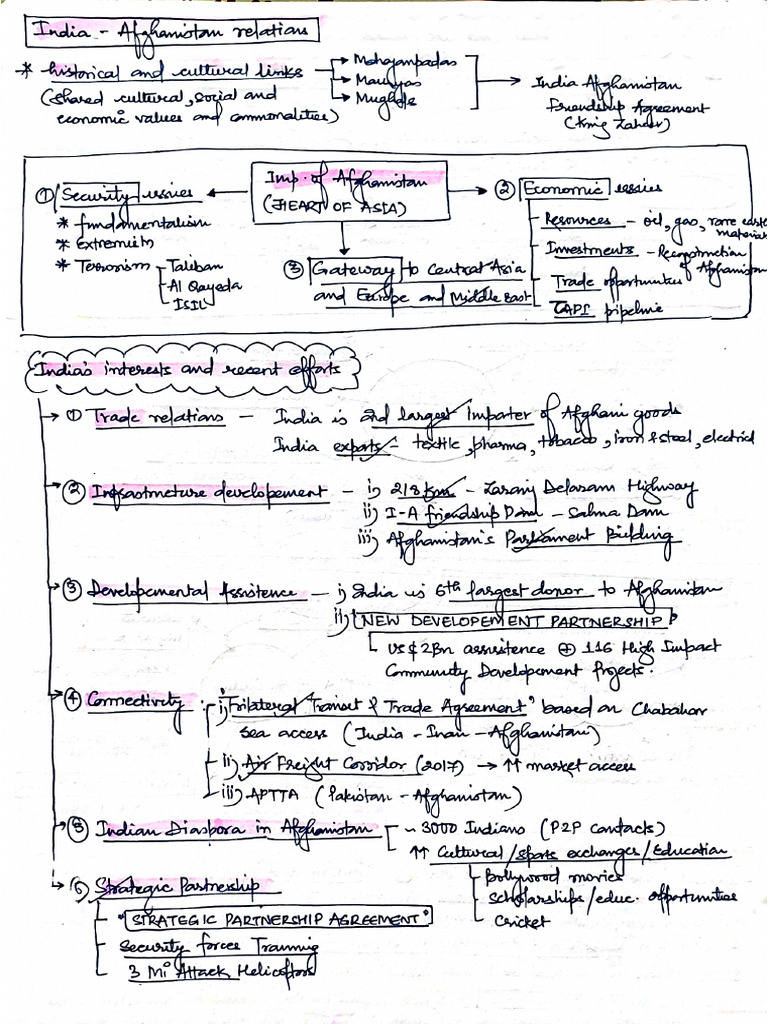 India - Afghanistan relations
* historical and cultural links
(shared cultural, social and
economic values and commonalities)
Mahajanpadas
Mauryas
Mughals
India Afghanistan
Friendship Agreement
(King Zaheer)
Imp. of Afghanistan
(HEART OF ASIA)
① Security issues
* fundamentalism
* extremism
* Terrorism
Taliban
Al Qayeda
ISIL
② Economic issues
Resources - oil, gas, rare earth
materials
Investments - Reconstruction
of Afghanistan
Trade opportunities
TAPI pipeline
③ Gateway to Central Asia
and Europe and Middle East
India's interests and recent efforts
① Trade relations - India is 2nd largest Importer of Afghani goods
India exports - textile, pharma, tobacco, iron & steel, electrical
② Infrastructure developement - i) 218 km - Zaranj Delaram Highway
ii) I-A friendship Dam - Salma Dam
iii) Afghanistan's Parliament Building
③ Developmental Assistence - i) India is 6th largest donor to Afghanistan
ii) NEW DEVELOPEMENT PARTNERSHIP
US $ 2Bn assistence ⊕ 116 High Impact
Community Developement Projects.
④ Connectivity
i) Trilateral Transit & Trade Agreement" based on Chabahar
sea access (India - Iran - Afghanistan)
ii) Air Freight Corridor (2017) → ↑↑ market access
iii) APTTA (Pakistan - Afghanistan)
⑤ Indian Diaspora in Afghanistan
~ 3000 Indians (P2P contacts)
↑↑ Cultural / sports exchanges / Education
Bollywood movies
Scholarships / educ. opportunities
Cricket
⑥ Strategic Partnership
"STRATEGIC PARTNERSHIP AGREEMENT"
Security forces Training
3 Mi Attack Helicoptors